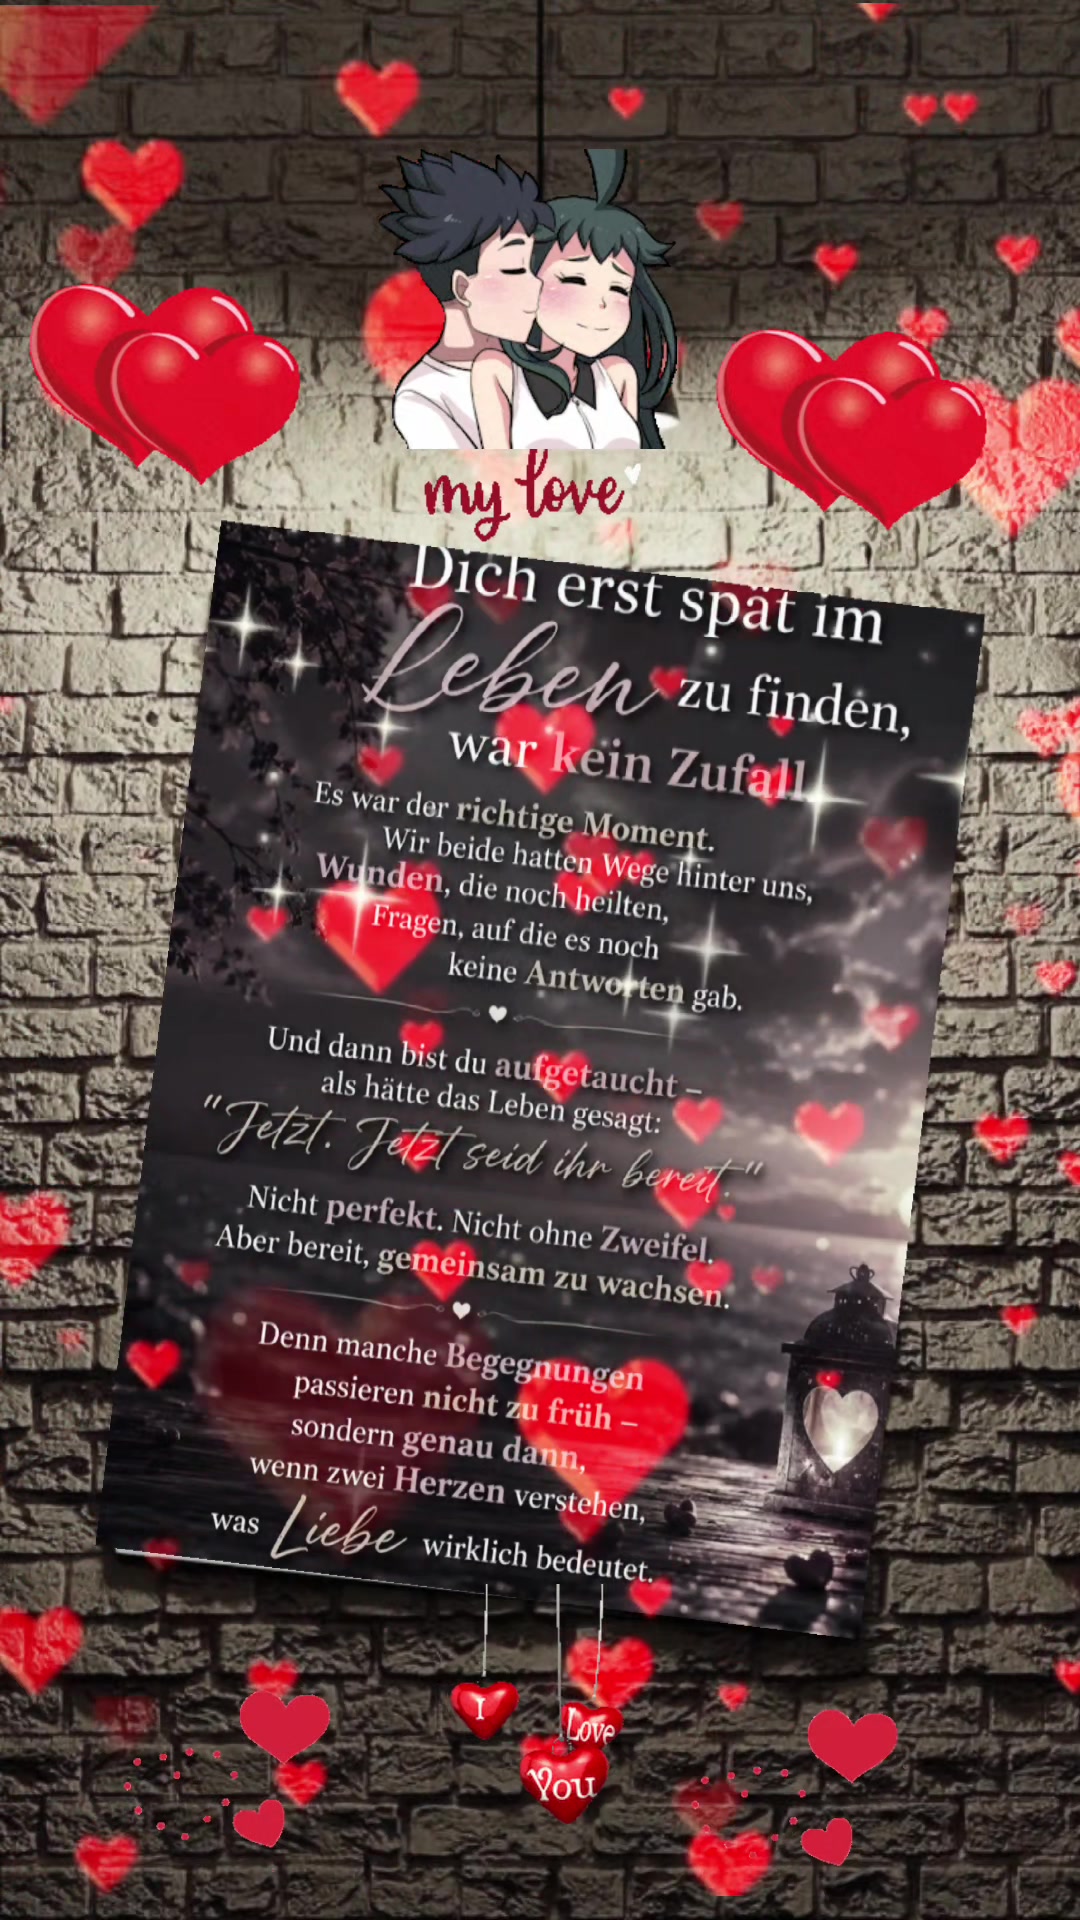 my love
Dich erst spät im
Leben zu finden,
war kein Zufall.
Es war der richtige Moment.
Wir beide hatten Wege hinter uns,
Wunden, die noch heilten,
Fragen, auf die es noch
keine Antworten gab.
Und dann bist du aufgetaucht –
als hätte das Leben gesagt:
"Jetzt. Jetzt seid ihr bereit."
Nicht perfekt. Nicht ohne Zweifel.
Aber bereit, gemeinsam zu wachsen.
Denn manche Begegnungen
passieren nicht zu früh –
sondern genau dann,
wenn zwei Herzen verstehen,
was Liebe wirklich bedeutet.
I
Love
You